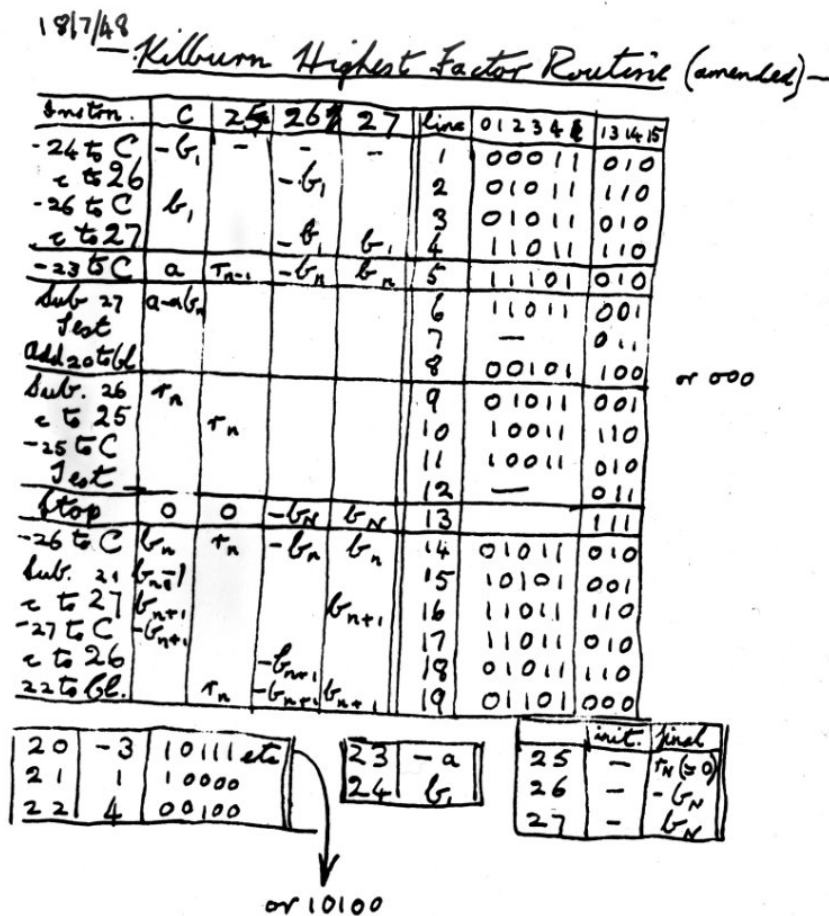 18/7/48
Kilburn Highest Factor Routine (amended)
Instcn. C 25 26 27 line 0 1 2 3 4 5 13 14 15
-24 to C -b₁ - - - 1 00011 010
c to 26 -b₁ 2 01011 110
-26 to C b₁ 3 01011 010
c to 27 -b₁ b₁ 4 11011 110
-23 to C a rₙ₋₁ -bₙ bₙ 5 11101 010
Sub. 27 a-bₙ 6 11011 001
Test 7 — 011
Add 20 to Cl 8 00101 100 or 000
Sub. 26 rₙ 9 01011 001
c to 25 rₙ 10 10011 110
-25 to C 11 10011 010
Test 12 — 011
Stop 0 0 -b_N b_N 13 111
-26 to C bₙ rₙ -bₙ bₙ 14 01011 010
Sub. 21 bₙ-1 15 10101 001
c to 27 bₙ₊₁ bₙ₊₁ 16 11011 110
-27 to C -bₙ₊₁ 17 11011 010
c to 26 -bₙ₊₁ 18 01011 110
22 to Cl. rₙ -bₙ₊₁ bₙ₊₁ 19 01101 000
20 -3 10111 etc
21 1 10000
22 4 00100
or 10100
23 -a
24 b₁
init. final
25 - r_N (=0)
26 - -b_N
27 - b_N